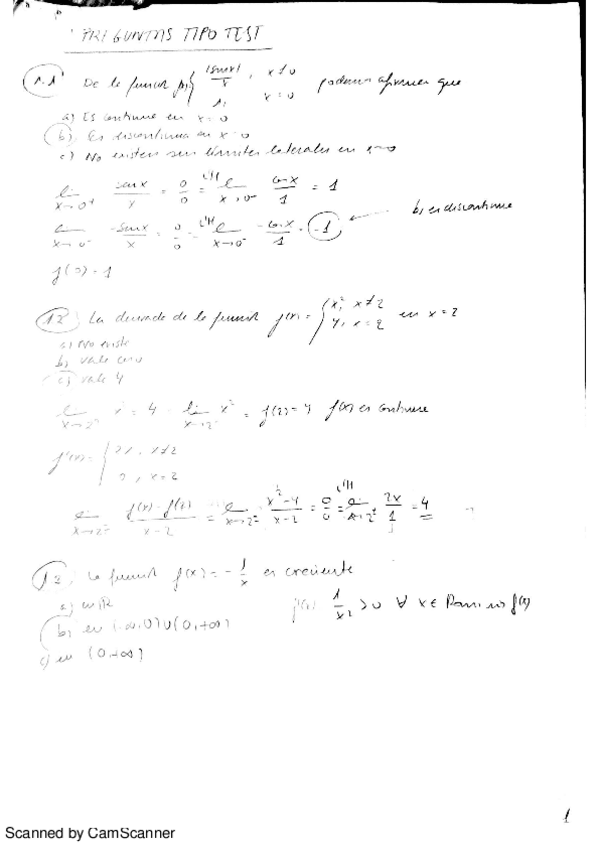 PREGUNTAS TIPO TEST
1.1 De la función f(x) { |senx|/x, x≠0 podemos afirmar que
1, x=0
a) Es continua en x=0
b) Es discontinua en x=0
c) No existen sus límites laterales en x=0
lim x→0+ senx/x = 0/0 = L'H lim x→0+ cosx/1 = 1
lim x→0- -senx/x = 0/0 = L'H lim x→0- -cosx/1 = -1 b) es discontinua
f(0)=1
1.2 La derivada de la función f(x) = { x², x≠2 en x=2
4, x=2
a) No existe
b) vale cero
c) vale 4
lim x→2- x² = 4 = lim x→2+ x² = f(2)=4 f(x) es continua
f'(x) = { 2x, x≠2
0, x=2
lim x→2- f(x)-f(2)/x-2 = lim x→2- x²-4/x-2 = 0/0 = L'H lim 2x/1 = 4
1.3 La función f(x) = -1/x es creciente
a) en R f'(x) 1/x² >0 ∀ x∈ Dominio f(x)
b) en (-∞,0)∪(0,+∞)
c) en (0,+∞)
1
Scanned by CamScanner